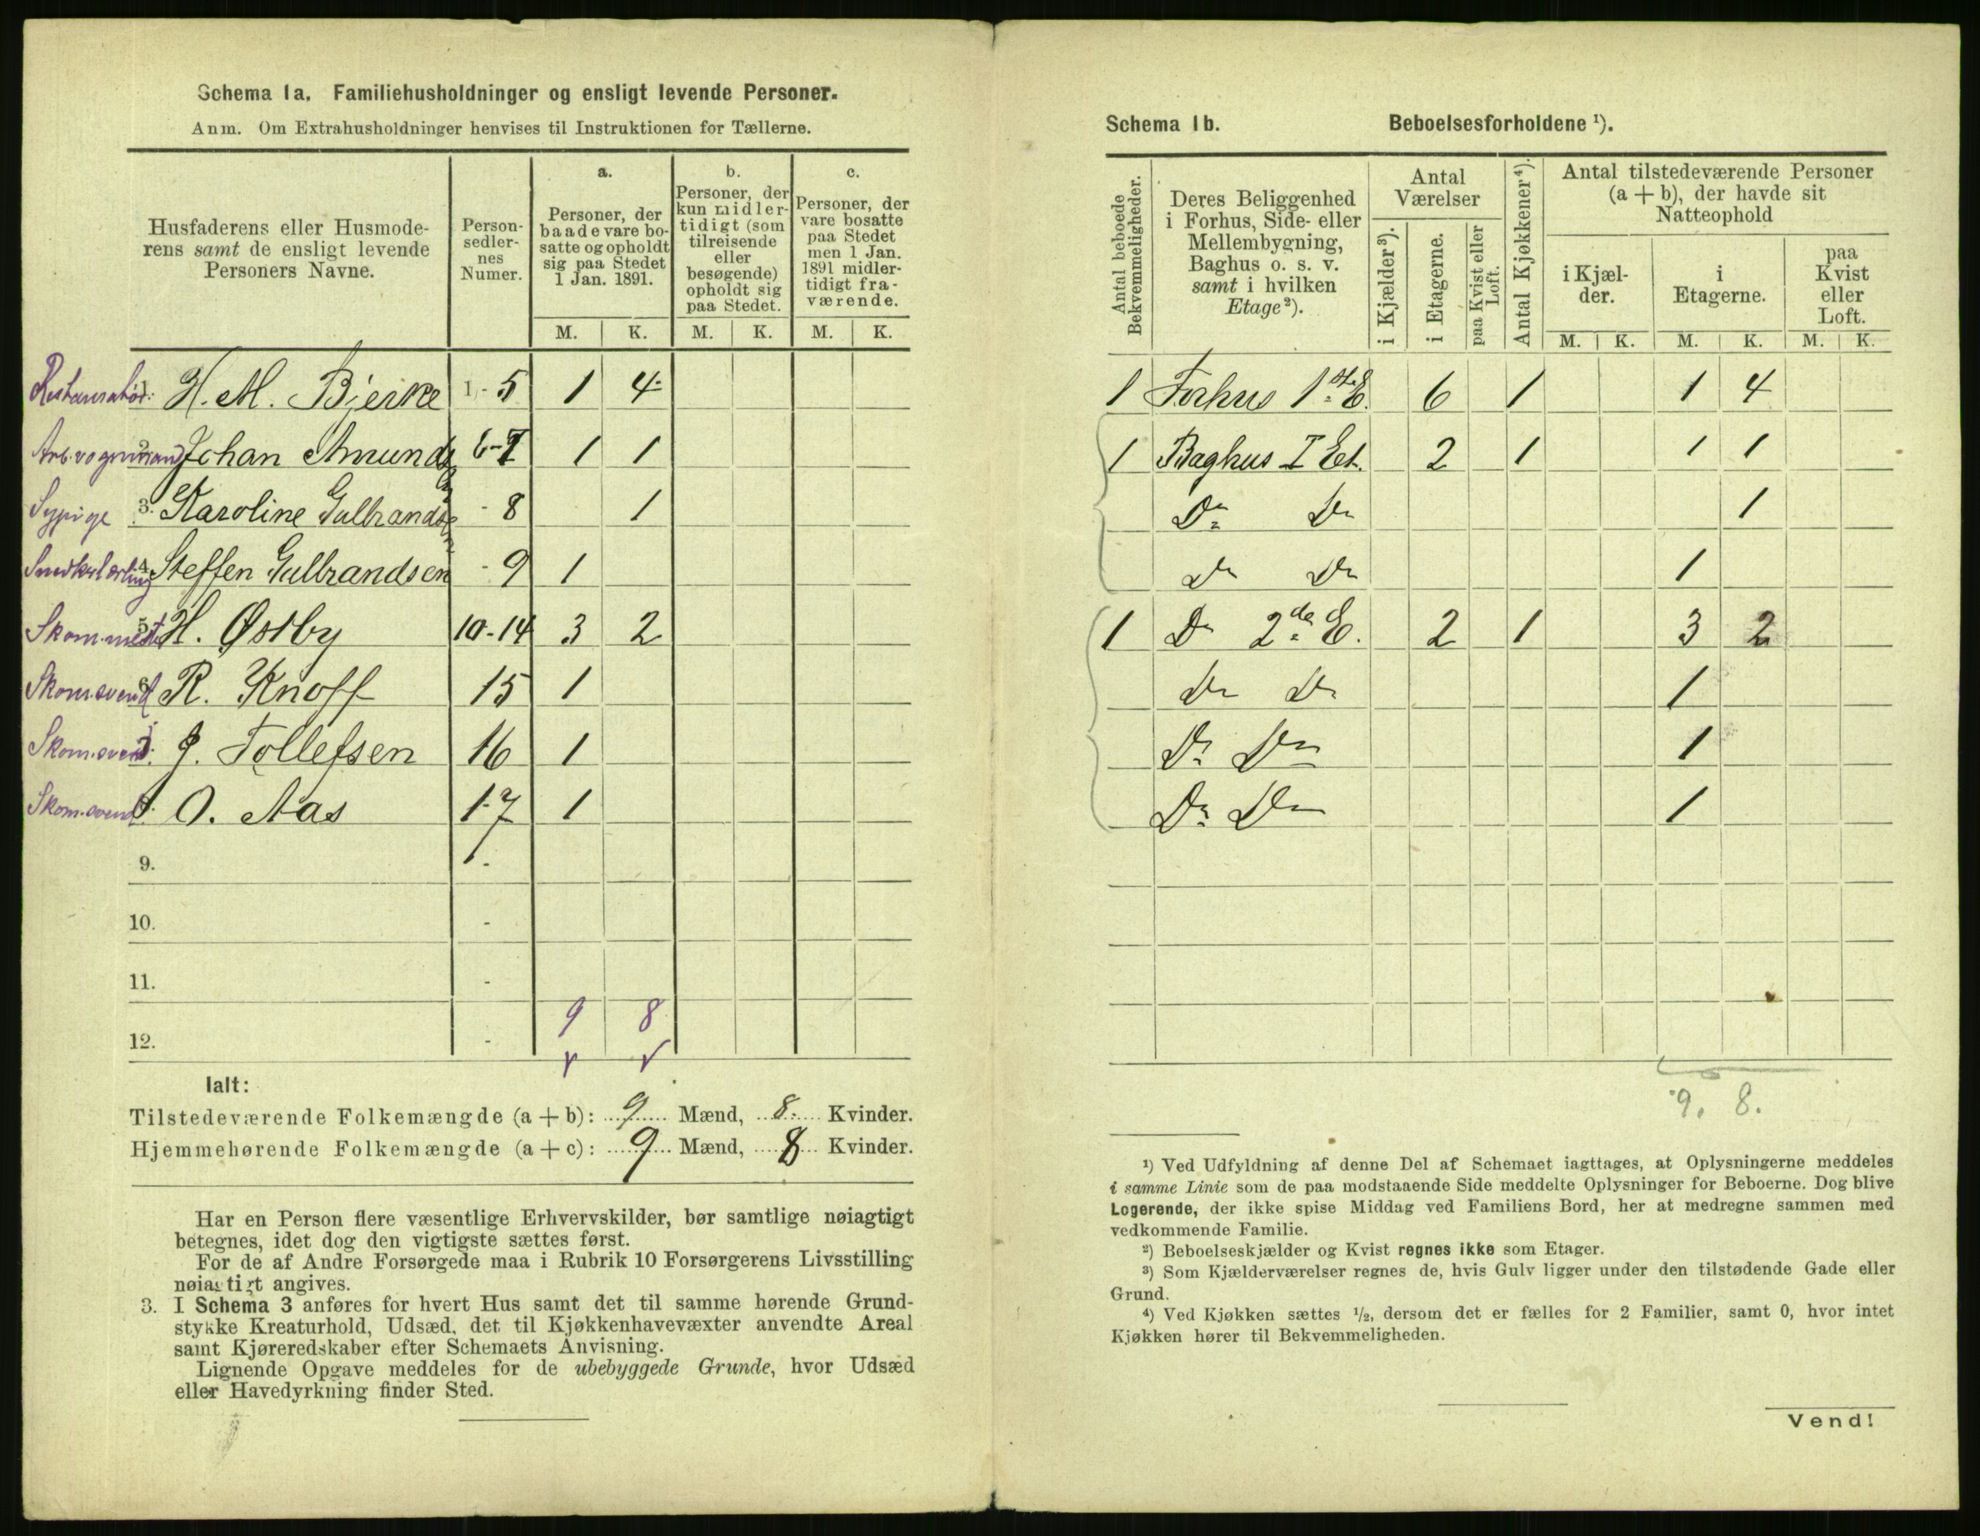 Schema 1a. Familiehusholdninger og ensligt levende Personer.
Anm. Om Extrahusholdninger henvises til Instruktionen for Tællerne.
Husfaderens eller Husmode-
rens samt de ensligt levende
Personers Navne.
Person-
sedler-
nes
Numer.
a.
Personer, der
baade vare bo-
satte og opholdt
sig paa Stedet
1 Jan. 1891.
b.
Personer, der
kun midler-
tidigt (som
tilreisende
eller
besøgende)
opholdt sig
paa Stedet.
c.
Personer, der
vare bosatte
paa Stedet
men 1 Jan.
1891 midler-
tidigt fra-
værende.
M. K. M. K. M. K.
Restauratør. 1. H. M. Bjerke 1 - 5 1 4
Arb. vognmand 2. Johan Amunds 6-7 1 1
Sypige 3. Karoline Gulbrands - 8 1
Snedkerlærling 4. Steffen Gulbrandsen - 9 1
Skom.mester 5. H. Østby 10-14 3 2
Skom.svend 6. R. Knoff 15 1
Skom.svend 7. J. Tollefsen 16 1
Skom.svend 8. O. Aas 17 1
9. -
10. -
11. -
9 8
12. -
Ialt:
Tilstedeværende Folkemængde (a + b): 9 Mænd, 8 Kvinder.
Hjemmehørende Folkemængde (a + c): 9 Mænd, 8 Kvinder.
Har en Person flere væsentlige Erhvervskilder, bør samtlige nøiagtigt
betegnes, idet dog den vigtigste sættes først.
For de af Andre Forsørgede maa i Rubrik 10 Forsørgerens Livsstilling
nøiagtigt angives.
3. I Schema 3 anføres for hvert Hus samt det til samme hørende Grund-
stykke Kreaturhold, Udsæd, det til Kjøkkenhavevæxter anvendte Areal
samt Kjøreredskaber efter Schemaets Anvisning.
Lignende Opgave meddeles for de ubebyggede Grunde, hvor Udsæd
eller Havedyrkning finder Sted.
Schema 1b. Beboelsesforholdene ¹).
Antal beboede
Bekvemmeligheder.
Deres Beliggenhed
i Forhus, Side- eller
Mellembygning,
Baghus o. s. v.
samt i hvilken
Etage²).
Antal
Værelser
i Kjælder³).
i Etagerne.
paa Kvist eller
Loft.
Antal Kjøkkener⁴).
Antal tilstedeværende Personer
(a + b), der havde sit
Natteophold
i Kjæl-
der.
i
Etagerne.
paa
Kvist
eller
Loft.
M. K. M. K. M. K.
1 Forhus 1ste E. 6 1 1 4
1 Baghus I Et. 2 1 1 1
Do Do 1
Do Do 1
1 Do 2de E. 2 1 3 2
Do Do 1
Do Do 1
Do Do 1
9. 8.
¹) Ved Udfyldning af denne Del af Schemaet iagttages, at Oplysningerne meddeles
i samme Linie som de paa modstaaende Side meddelte Oplysninger for Beboerne. Dog blive
Logerende, der ikke spise Middag ved Familiens Bord, her at medregne sammen med
vedkommende Familie.
²) Beboelseskjælder og Kvist regnes ikke som Etager.
³) Som Kjælderværelser regnes de, hvis Gulv ligger under den tilstødende Gade eller
Grund.
⁴) Ved Kjøkken sættes ½, dersom det er fælles for 2 Familier, samt 0, hvor intet
Kjøkken hører til Bekvemmeligheden.
Vend!